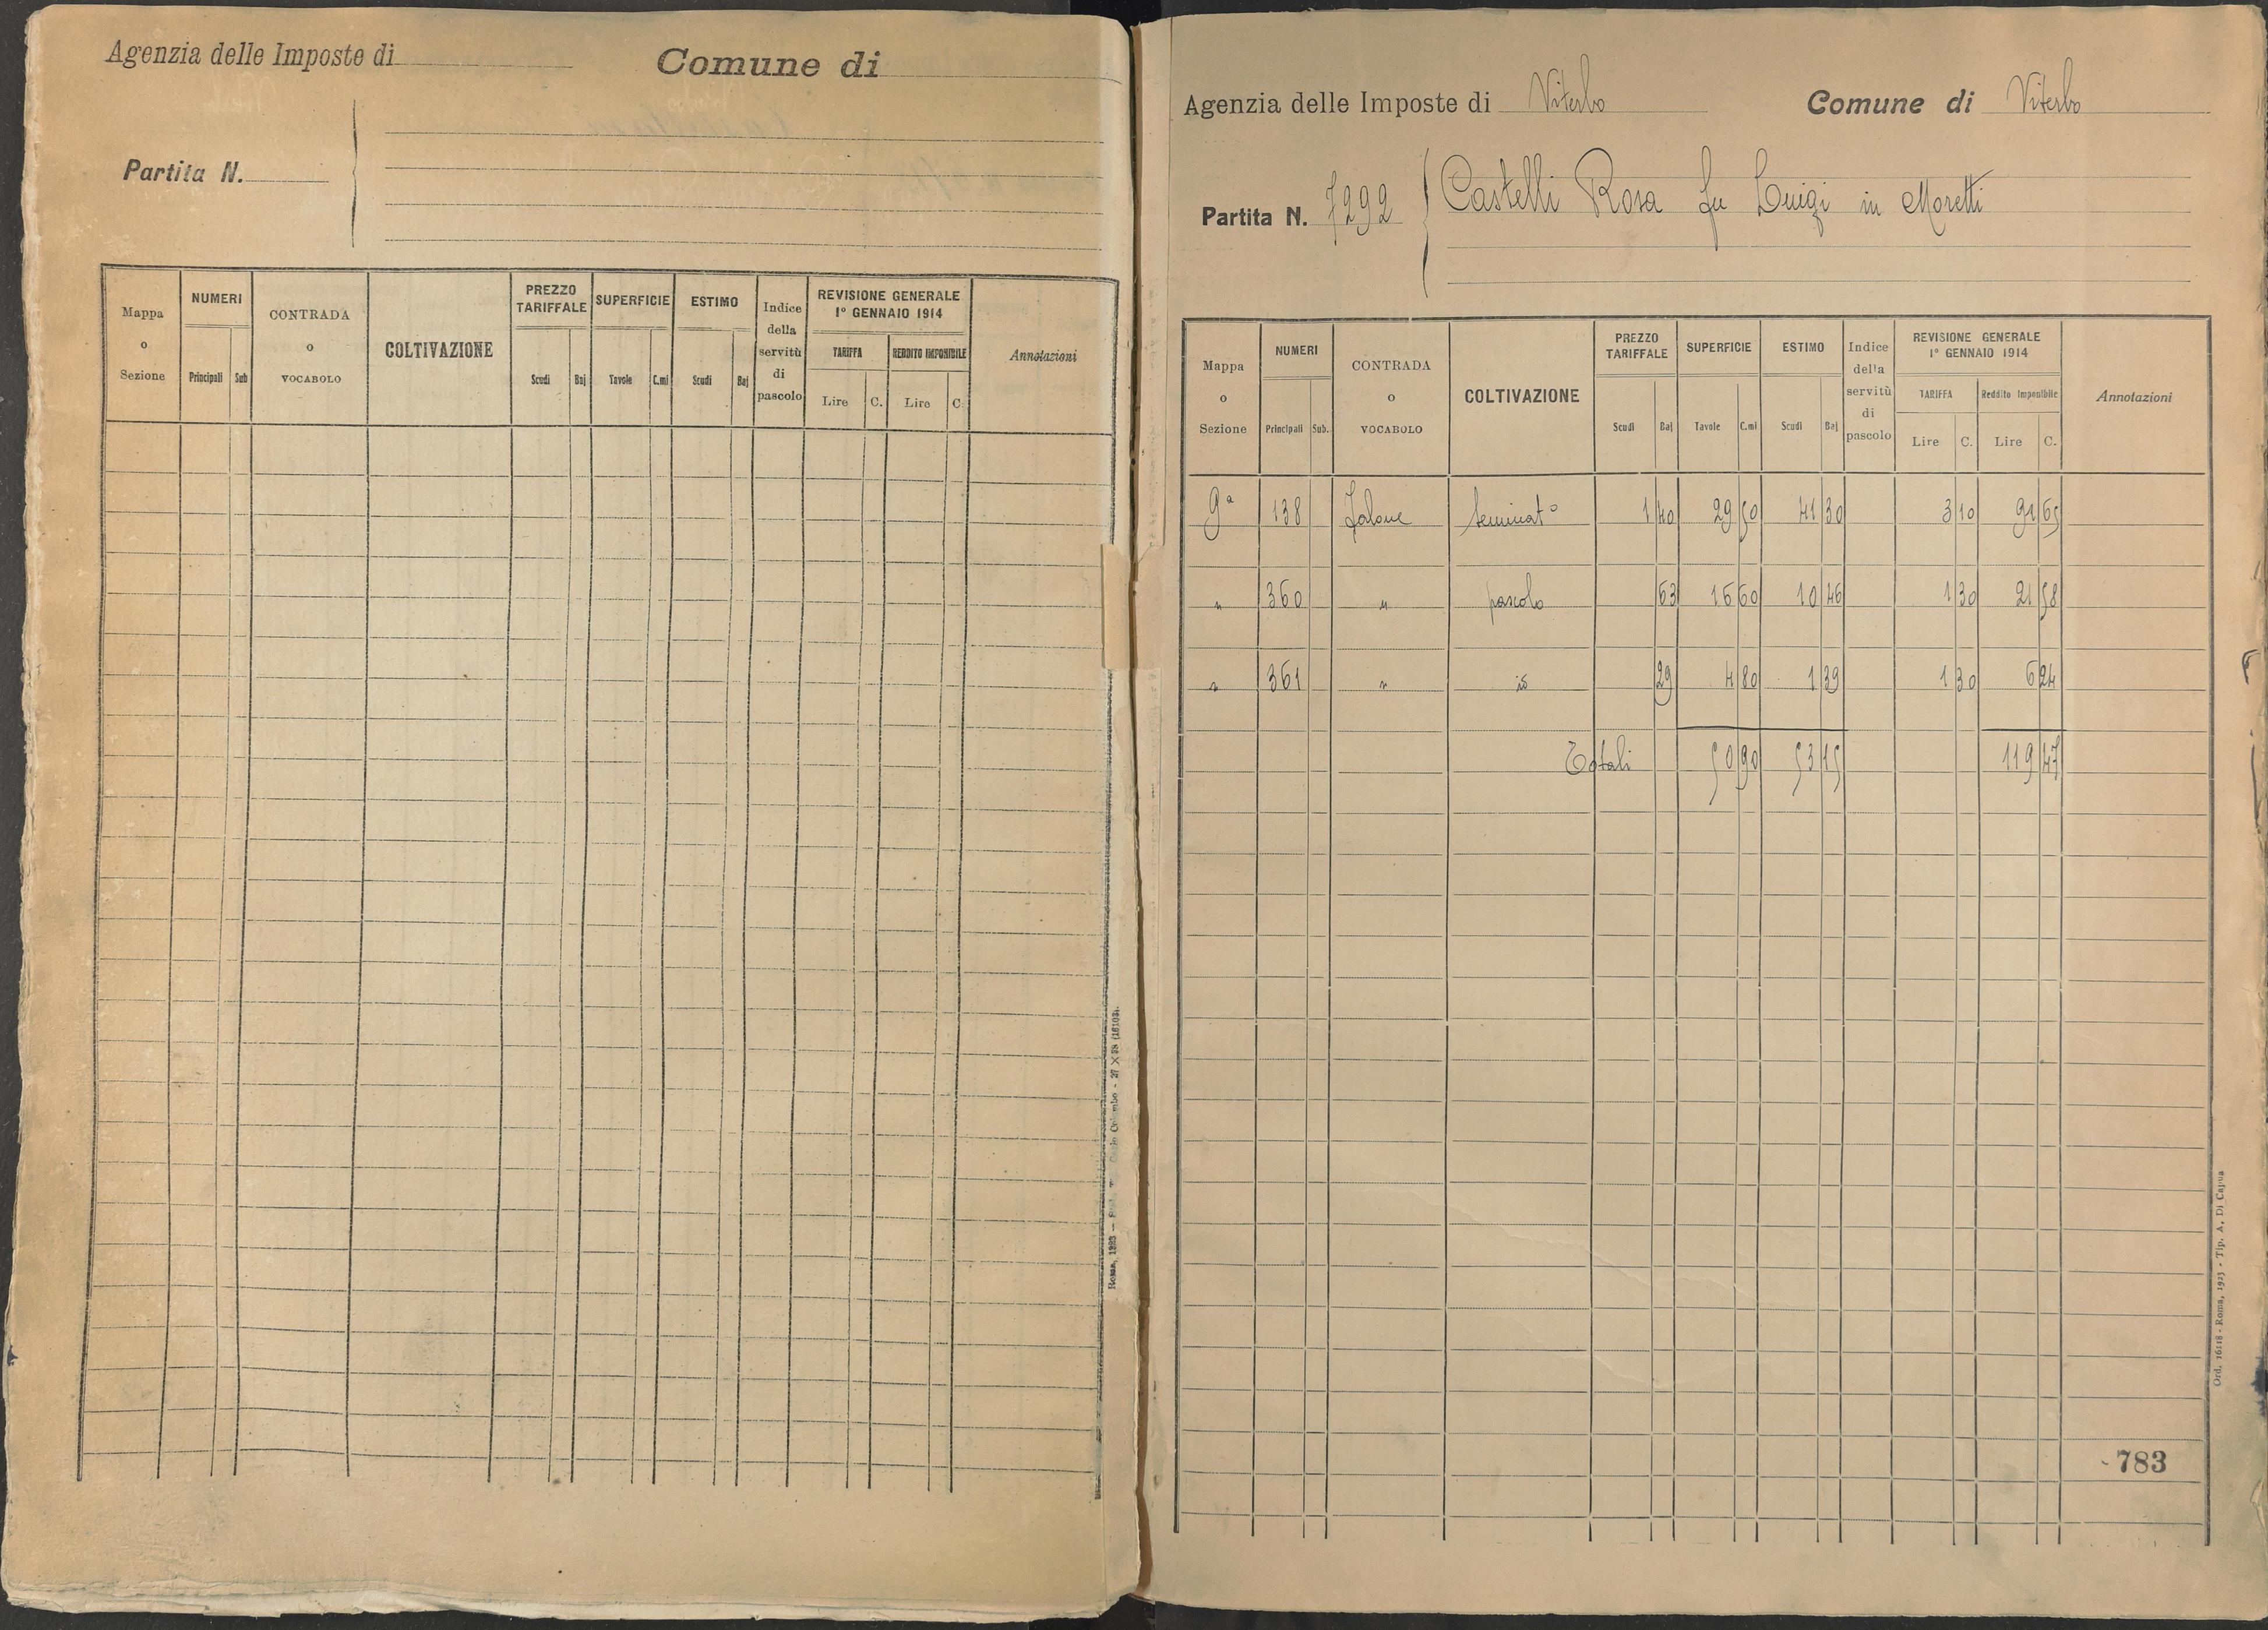 Agenzia delle Imposte di Comune di
Partita N.
Mappa o Sezione NUMERI Principali Sub CONTRADA o VOCABOLO COLTIVAZIONE PREZZO TARIFFALE Scudi Baj SUPERFICIE Tavole C.mi ESTIMO Scudi Baj Indice della servitù di pascolo REVISIONE GENERALE 1º GENNAIO 1914 TARIFFA Lire C. REDDITO IMPONIBILE Lire C. Annotazioni
Agenzia delle Imposte di Viterbo Comune di Viterbo
Partita N. 7292 Castelli Rosa fu Luigi in Moretti
Mappa o Sezione NUMERI Principali Sub. CONTRADA o VOCABOLO COLTIVAZIONE PREZZO TARIFFALE Scudi Baj SUPERFICIE Tavole C.mi ESTIMO Scudi Baj Indice della servitù di pascolo REVISIONE GENERALE 1º GENNAIO 1914 TARIFFA Lire C. Reddito Imponibile Lire C. Annotazioni
9ª 138 seminatº 1 40 29 50 41 30 3 10 91 65
" 360 " pascolo 63 16 60 10 46 1 30 21 58
" 361 " id 29 4 80 1 39 1 30 6 24
Totali 50 90 53 15 119 47
783
Ord. 16118 - Roma, 1923 - Tip. A. Di Capua